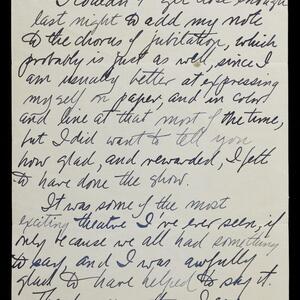 I couldn't get close enough
last night to add my note
to the chorus of jubilation, which
probably is just as well, since I
am usually better at expressing
myself on paper, and in color
and line at that most of the time,
but I did want to tell you
how glad, and rewarded, I felt
to have done the show.
It was some of the most
exciting theatre I've ever seen, if
only because we all had something
to say, and I was awfully
glad to have helped to say it.